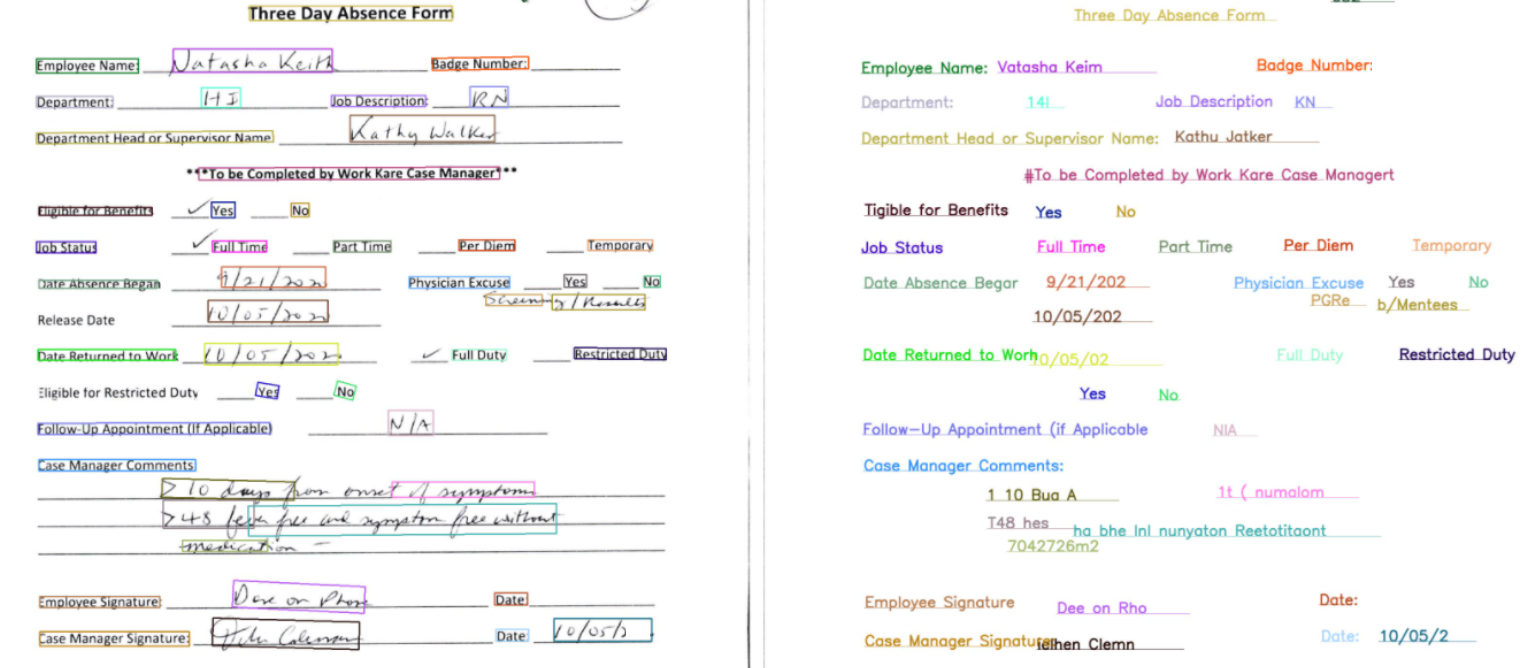 Three Day Absence Form
Employee Name: Natasha Keith Badge Number:
Department: HI Job Description: RN
Department Head or Supervisor Name Kathy Walker
***To be Completed by Work Kare Case Manager***
Eligible for Benefits ✓ Yes No
Job Status ✓ Full Time Part Time Per Diem Temporary
Date Absence Began 9/21/202 Physician Excuse Yes No
Screening/Results
Release Date 10/05/202
Date Returned to Work 10/05/202 ✓ Full Duty Restricted Duty
Eligible for Restricted Duty Yes No
Follow-Up Appointment (If Applicable) N/A
Case Manager Comments
>10 days from onset of symptoms
>48 fever free and symptom free without
medication -
Employee Signature: Done on Phone Date:
Case Manager Signature: Coleman Date: 10/05/2
Three Day Absence Form
Employee Name: Vatasha Keim Badge Number:
Department: 14l Job Description KN
Department Head or Supervisor Name: Kathu Jatker
#To be Completed by Work Kare Case Managert
Tigible for Benefits Yes No
Job Status Full Time Part Time Per Diem Temporary
Date Absence Begar 9/21/202 Physician Excuse Yes No
PGRe b/Mentees
10/05/202
Date Returned to Worh 10/05/02 Full Duty Restricted Duty
Yes No
Follow-Up Appointment (if Applicable NIA
Case Manager Comments:
1 10 Bua A 1t ( numalom
T48 hes ha bhe lnl nunyaton Reetotitaont
7042726m2
Employee Signature Dee on Rho Date:
Case Manager Signature lelhen Clemn Date: 10/05/2